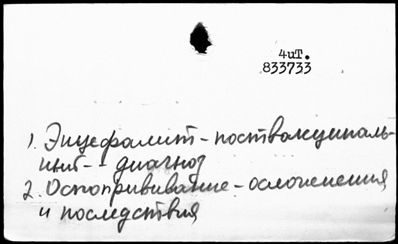 4иТ.
833733
1. Энцефалит - поствакциналь-
ный - - диагноз
2. Оспопрививание - осложнения
и последствия